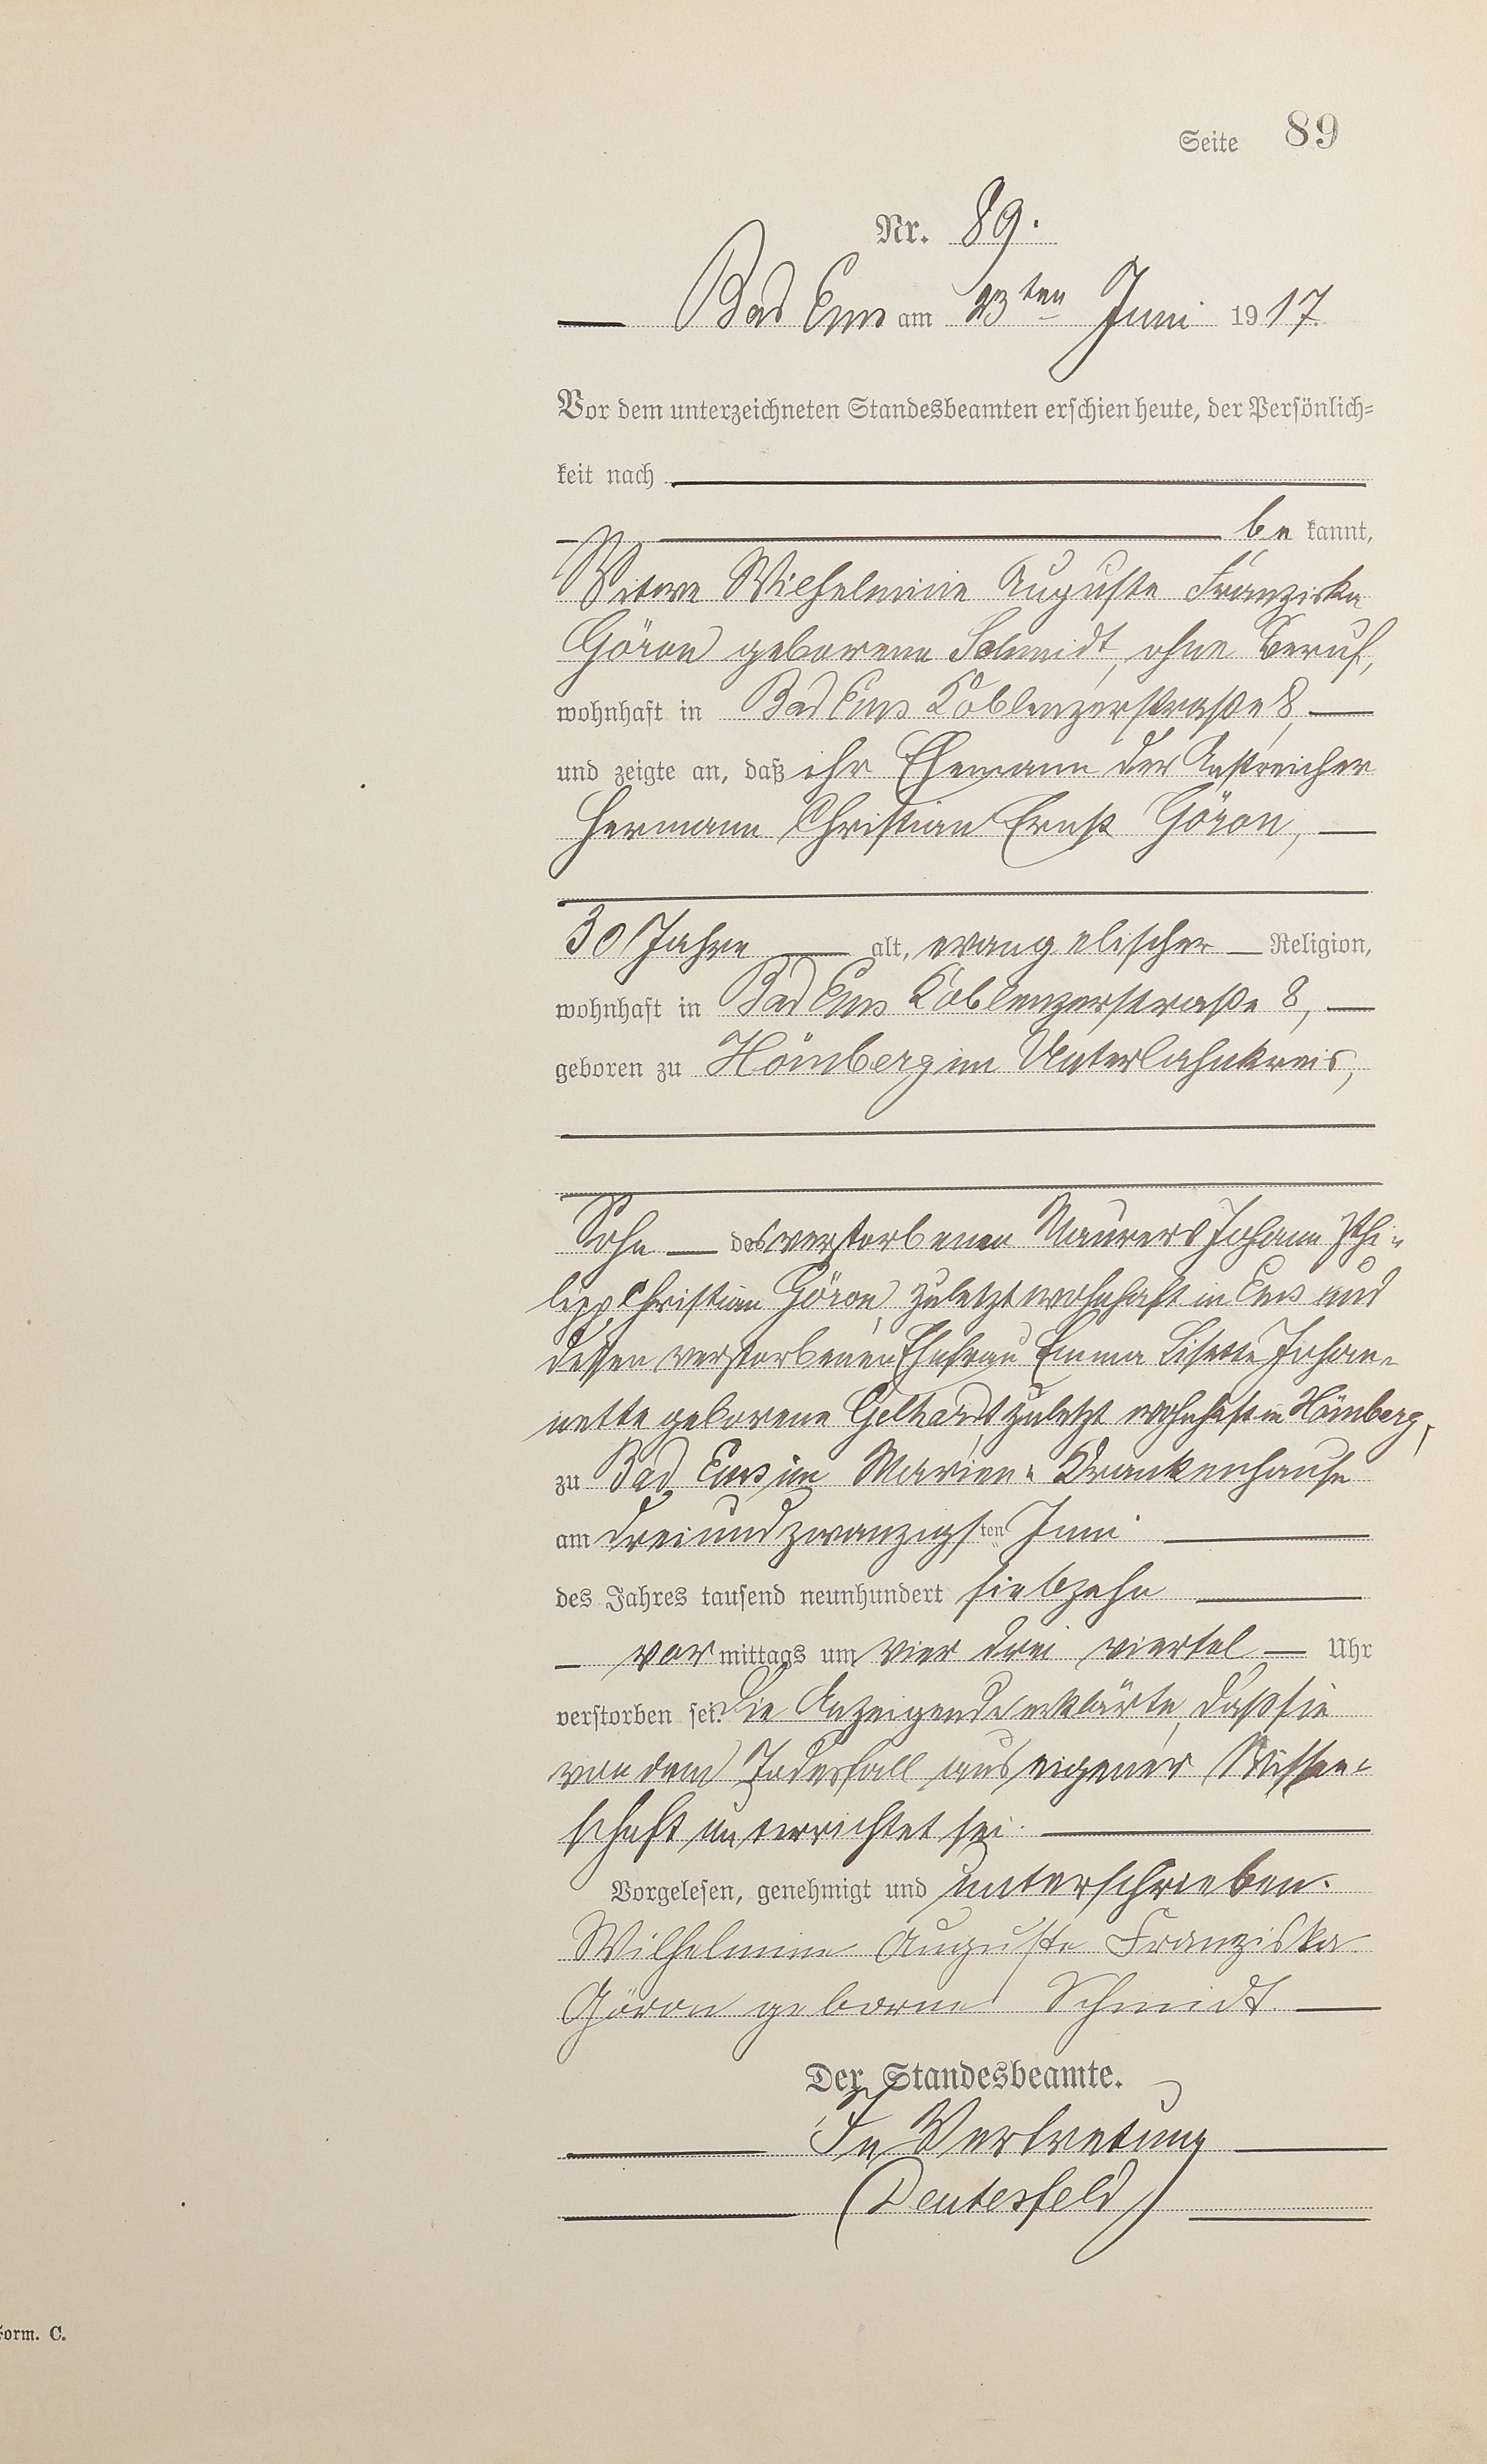 Seite 89
Nr. 89.
Bad Ems am 23ten Juni 1917.
Vor dem unterzeichneten Standesbeamten erschien heute, der Persönlich-
keit nach
be kannt,
Witwe Wilhelmine Auguste Franziska
Göron geborene Schmidt, ohne Beruf,
wohnhaft in Bad Ems Coblenzerstraße 8,
und zeigte an, daß ihr Ehemann der Anstreicher
Hermann Christian Ernst Göron,
30 Jahre alt, evangelischer Religion,
wohnhaft in Bad Ems Coblenzerstraße 8,
geboren zu Hömberg im Unterlahnkreis,
Sohn des verstorbenen Maurers Johann Phi-
lipp Christian Göron, zuletzt wohnhaft in Ems und
dessen verstorbenen Ehefrau Emma Lisette Johan-
nette geborene Gelhardt, zuletzt wohnhaft in Hömberg,
zu Bad Ems im Marien-Krankenhause
am dreiundzwanzigsten Juni
des Jahres tausend neunhundert siebzehn
vor mittags um vier drei viertel Uhr
verstorben sei. Die Anzeigende erklärte, daß sie
von dem Todesfall aus eigener Wissen-
schaft unterrichtet sei.
Vorgelesen, genehmigt und unterschrieben.
Wilhelmine Auguste Franziska
Göron geborne Schmidt
Der Standesbeamte.
In Vertretung
(Deutesfeld)
Form. C.